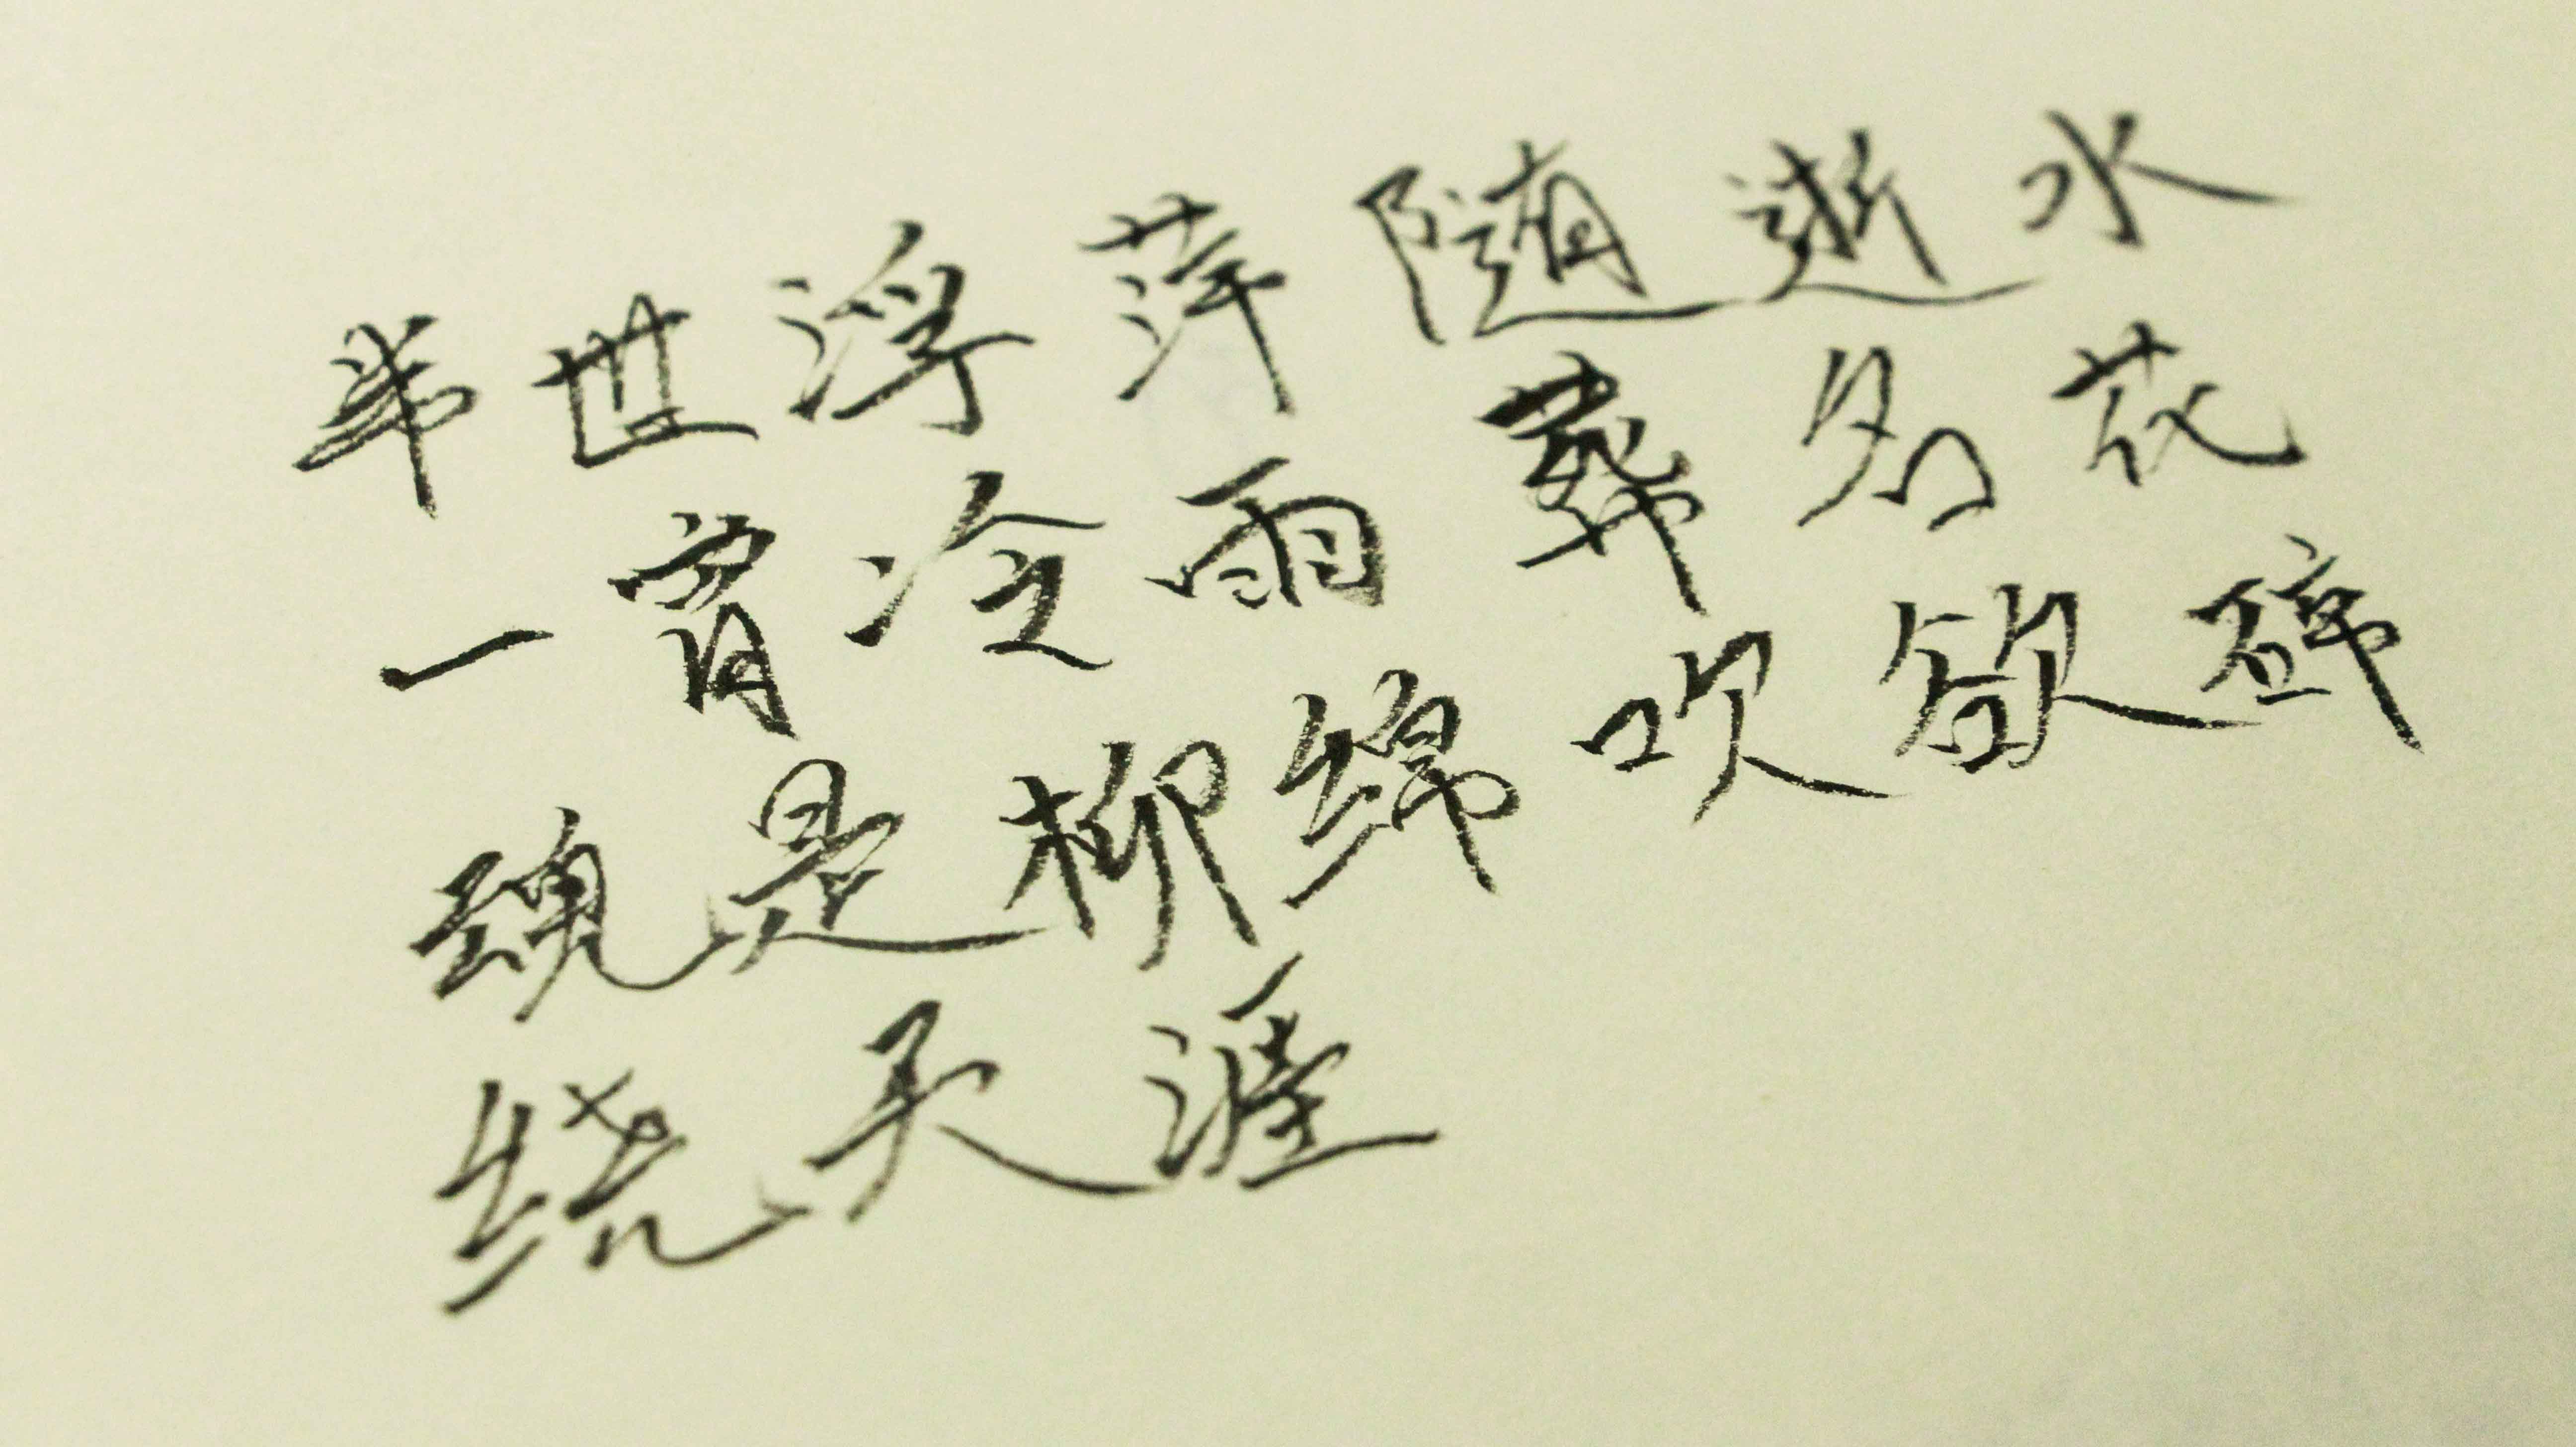 半世浮萍随逝水
一宵冷雨葬名花
魂是柳绵吹欲碎
绕天涯